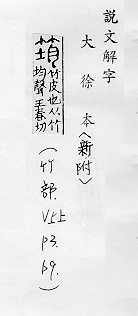 說文解字
大徐本〈新附〉
筠竹皮也从竹
均聲王春切
(竹部. V上 p3. b9.)